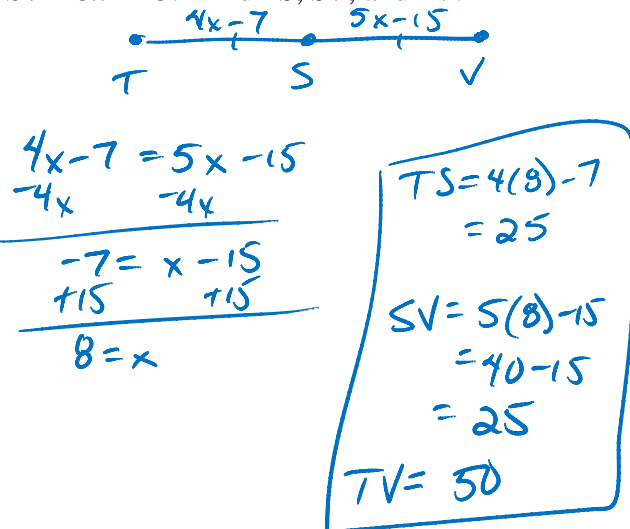 4x-7 5x-15
T S V
4x-7 = 5x -15
-4x -4x
-7 = x -15
+15 +15
8 = x
TS = 4(8)-7
= 25
SV = 5(8)-15
= 40-15
= 25
TV = 50